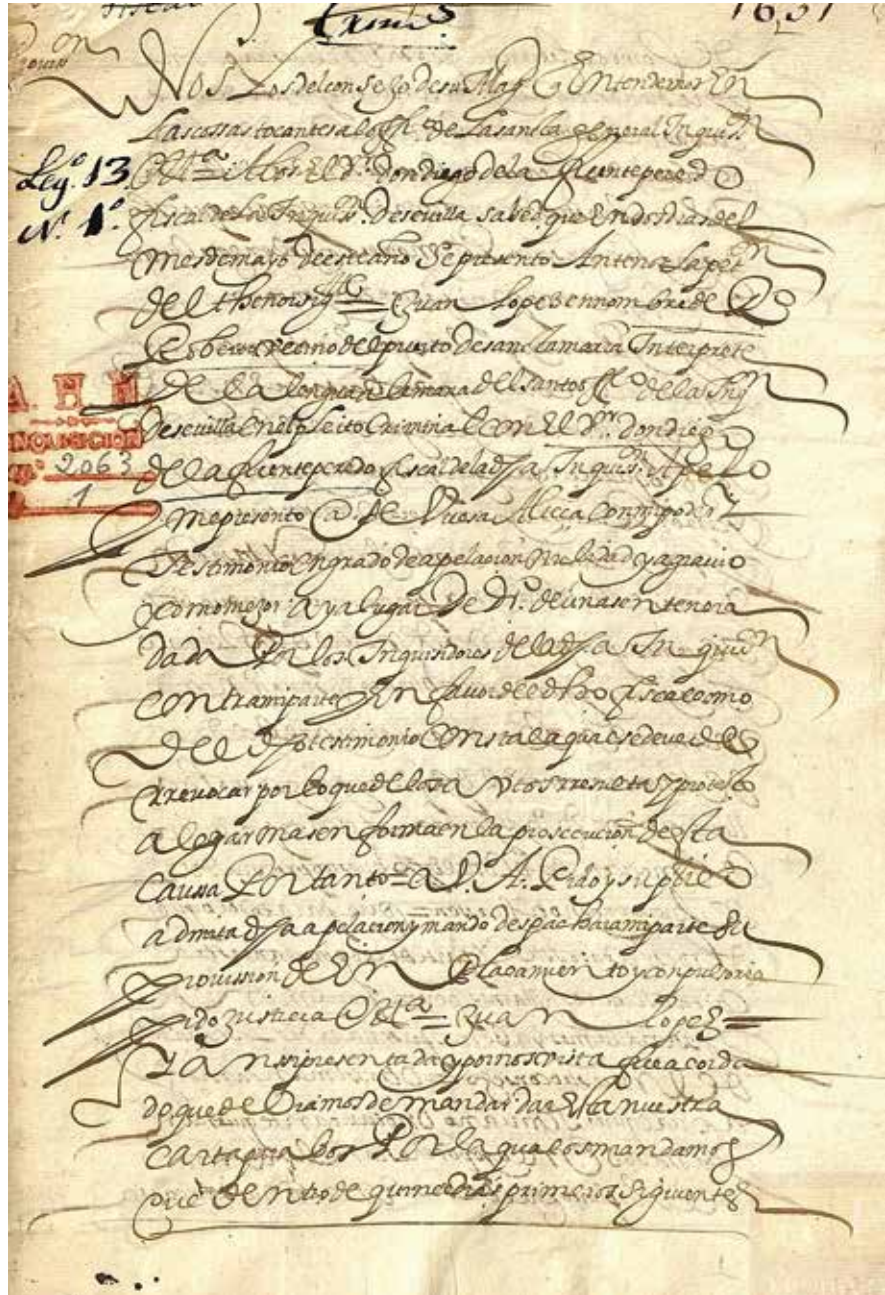 1631
Nos Los del consejo de su Mag q Entendemos En
Las cossas tocantes al offiº de La santa general Inquisºn
Leg.º 13
N.º 1.º
A Vos El dr. don diego de la fuente peredo
fiscal de la Inquisºn de sevilla sabed que En dos dias del
mes de mayo de este año se presento Ante nos La petºn
del thenor sigte = Juan Lopez en nombre de
vecino del puerto de santa maria Interprete
de la lengua de la camara del santo offº de la Inqºn
A. H. N
INQUISICION
2063
1
de sevilla En el pleito Criminal con El dr. don diego
de la fuente peredo fiscal de la dha Inquisºn
me presento Ante Vuesa Alteça con mi poder y
testimonio En grado de apelacion nulidad y agravio
y como mejor aya lugar de drº. de una sentencia
dada Por los Inquisidores de la dha Inquisºn
contra mi parte En favor del dho fiscal como
del dho testimonio consta la qual se deve
rrevocar por lo que de los autos rresulta y protesto
alegar mas en forma en la prosecucion desta
caussa Por tanto = a V. A. Pido y supplico
admita dha apelacion y mando despachar a mi parte su
provission de Enplaçamiento y conpulsoria
pido justicia = Juan Lopez =
y ansi presentada y por nos vista fue acorda
do que deviamos de mandar dar Esta nuestra
carta para Vos Por la qual os mandamos
que dentro de quince dias primeros siguientes